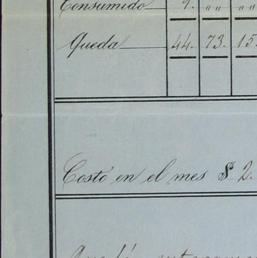 Consumido 9. " " " "
Queda 44. 73. 15.
Costo en el mes $ 2.